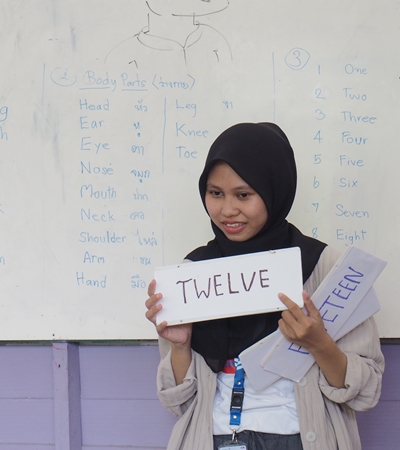 2 Body Parts (ร่างกาย)
Head หัว
Ear หู
Eye ตา
Nose จมูก
Mouth ปาก
Neck คอ
Shoulder ไหล่
Arm แขน
Hand มือ
Leg ขา
Knee
Toe
3
1 One
2 Two
3 Three
4 Four
5 Five
6 Six
7 Seven
8 Eight
TWELVE